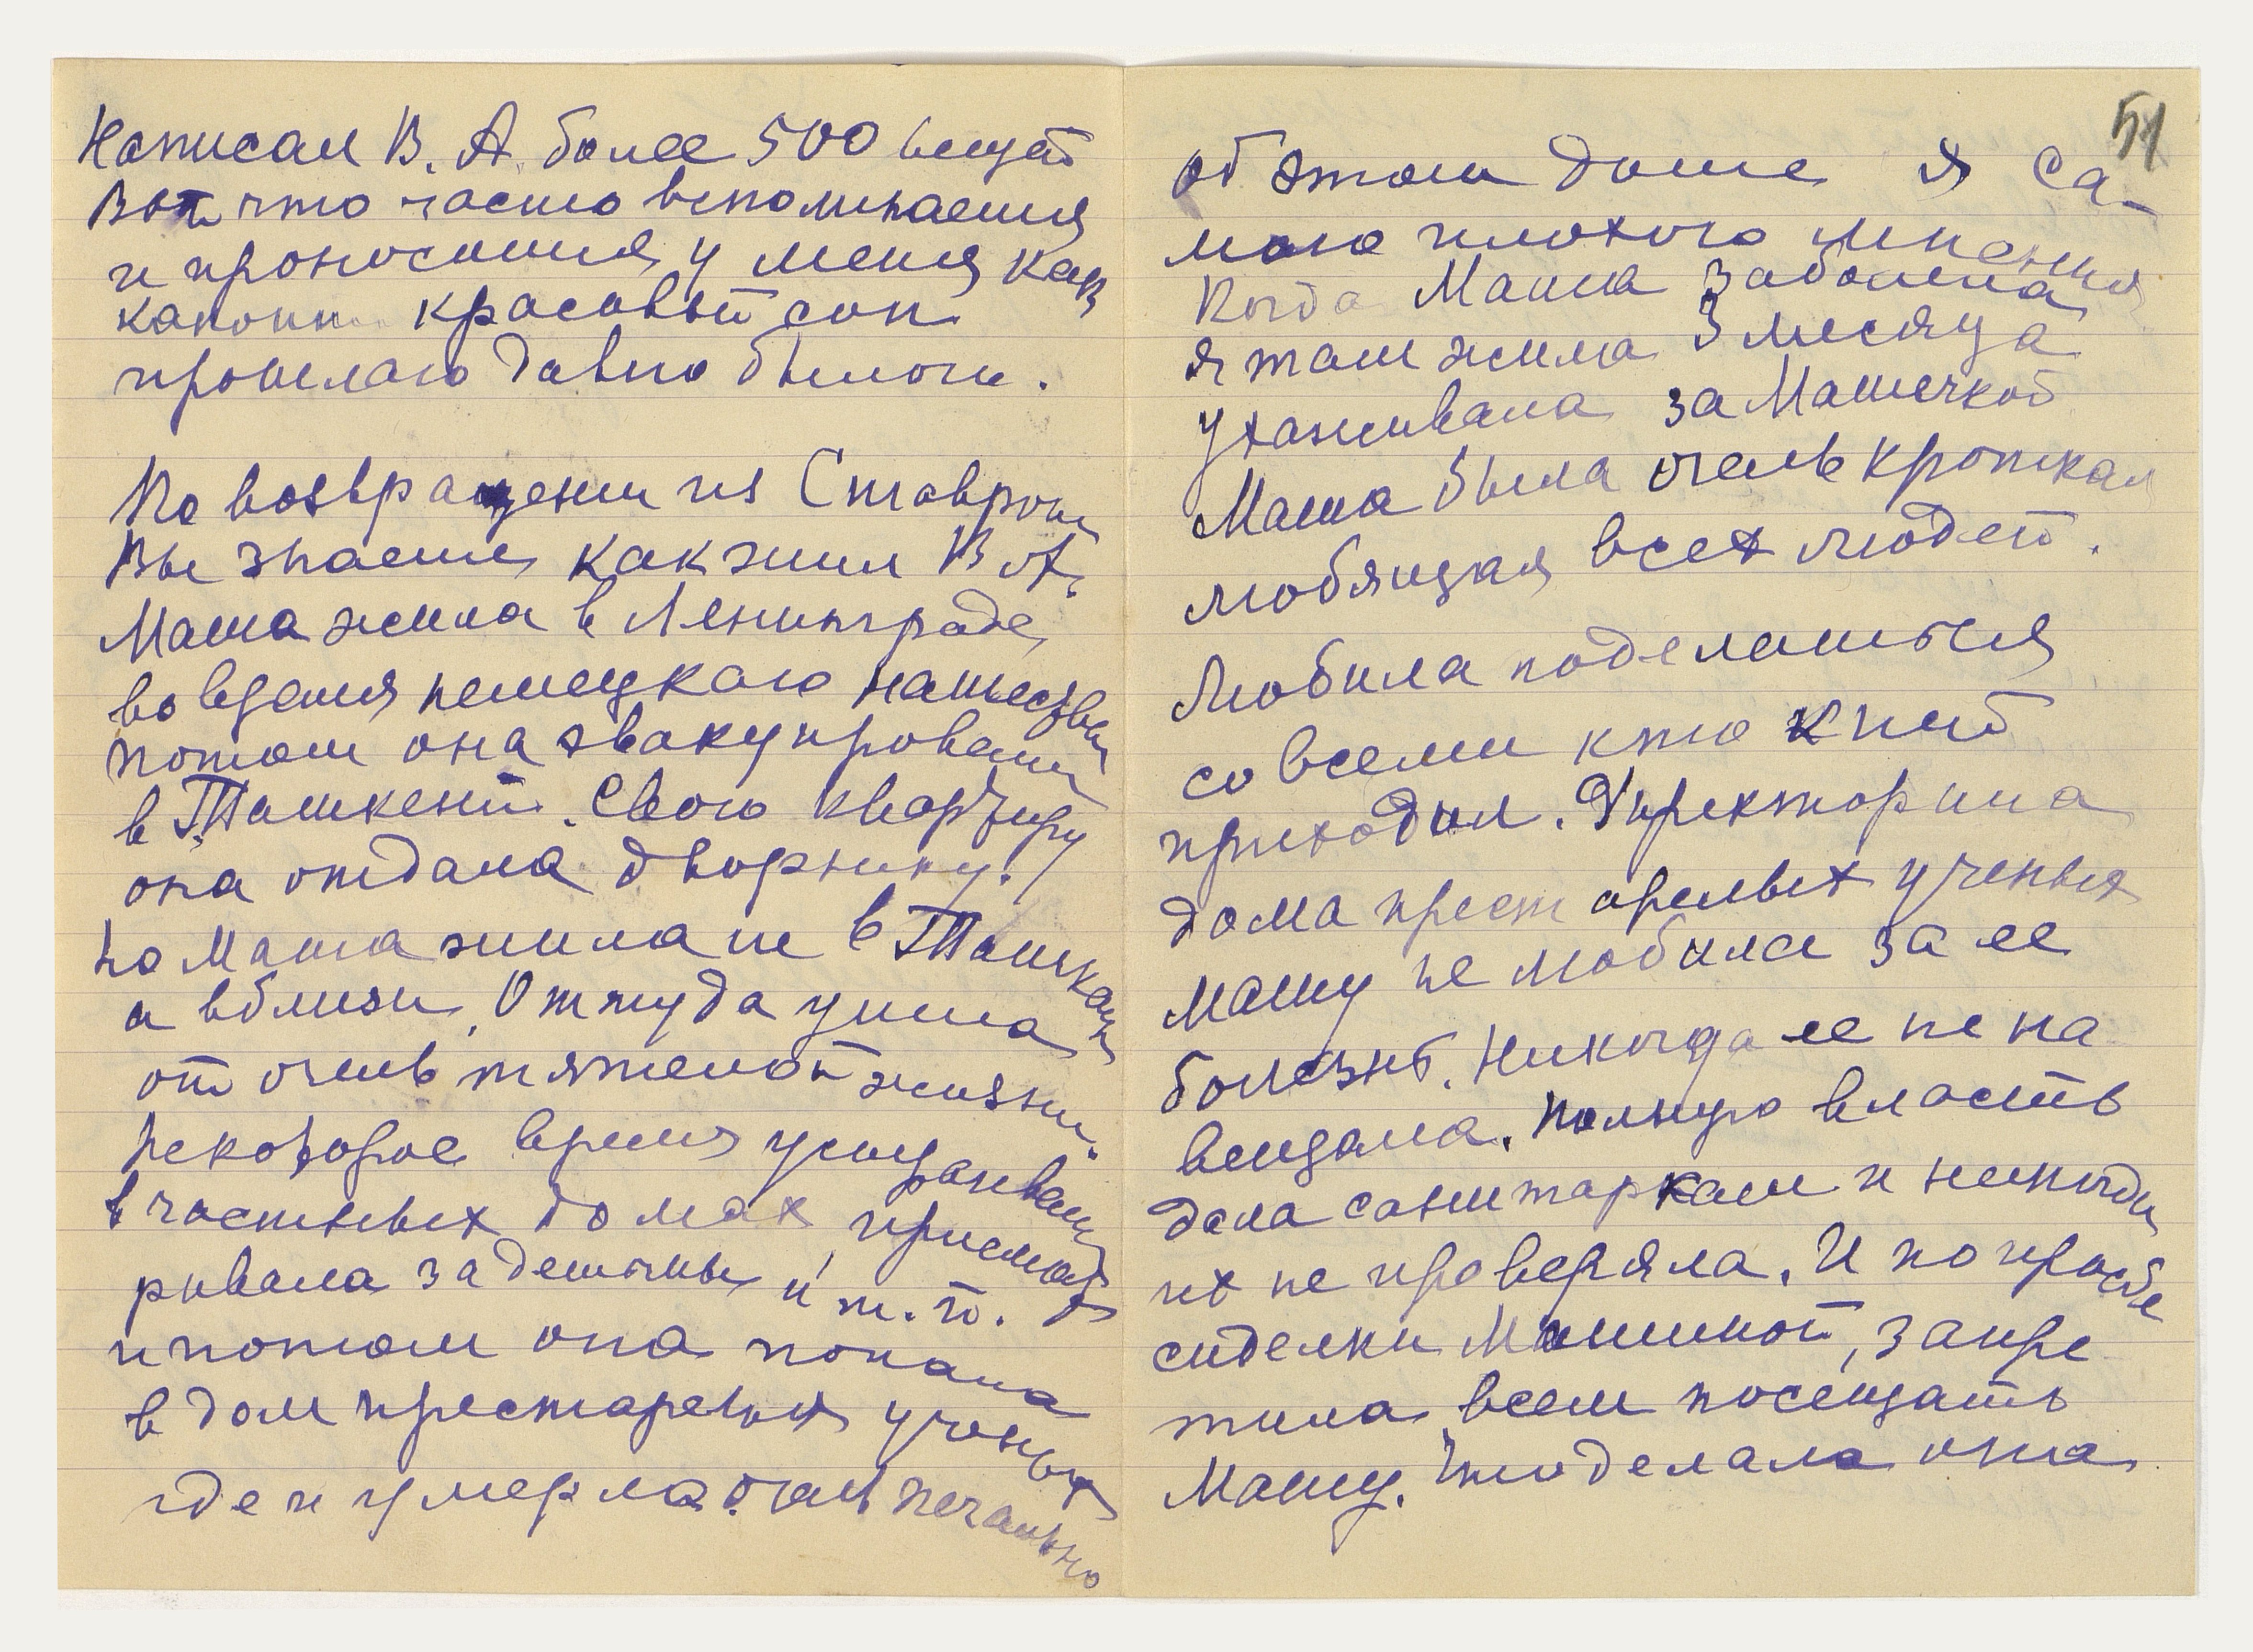 Написал В. А. более 500 вещей
Вот что часто вспоминается
и проносится у меня как
какой красивый сон
прошлого давно былого.
По возвращении из Ставроп
Вы знаете как жил В. А.
Маша жила в Ленинграде,
во время немецкого нашествия
потом она эвакуировалась
в Ташкент. Свою квартиру
она отдала дворнику.
но Маша жила не в Ташкенте
а вблизи, Оттуда ушла
от очень тяжелой жизни.
Некоторое время устраивалась
в частных домах, присмат
ривала за детьми и т. д.
и потом она попала
в дом престарелых ученых
где и умерла очень печально
51
об этом доме я са-
мого плохого мнения
Когда Маша заболела
я там жила 3 месяца
ухаживала за Машечкой
Маша была очень кроткая
любящая всех людей.
Любила поделиться
со всеми кто к ней
приходил. Директорша
дома престарелых ученых
Машу не любила за ее
болезнь. Никогда ее не на
вещала. Полную власть
дала санитаркам и никогда
их не проверяла. И по просьбе
сиделки Машиной, запре
тила всем посещать
Машу. Что делала она